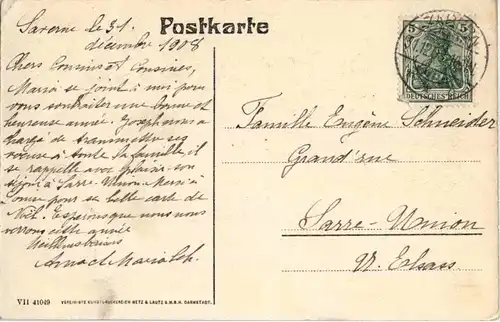 Postkarte
Saverne le 31.
décembre 1908
Chers Cousins et Cousines,
Maria se joint à moi pour
vous souhaiter une bonne et
heureuse année. Joseph nous a
chargé de transmettre ses
voeux à toute la famille, il
se rappelle avec plaisir son
séjour à Sarre-Union. Merci à
pour sa belle carte de
Noël. Espérons que nous nous
verrons cette année
Anna et Maria
5 5
DEUTSCHES REICH
Famille Eugène Schneider
Grand'rue
Sarre-Union
U. Elsass
VII 41049 VEREINIGTE KUNSTDRUCKEREIEN METZ & LAUTZ G.M.B.H. DARMSTADT.